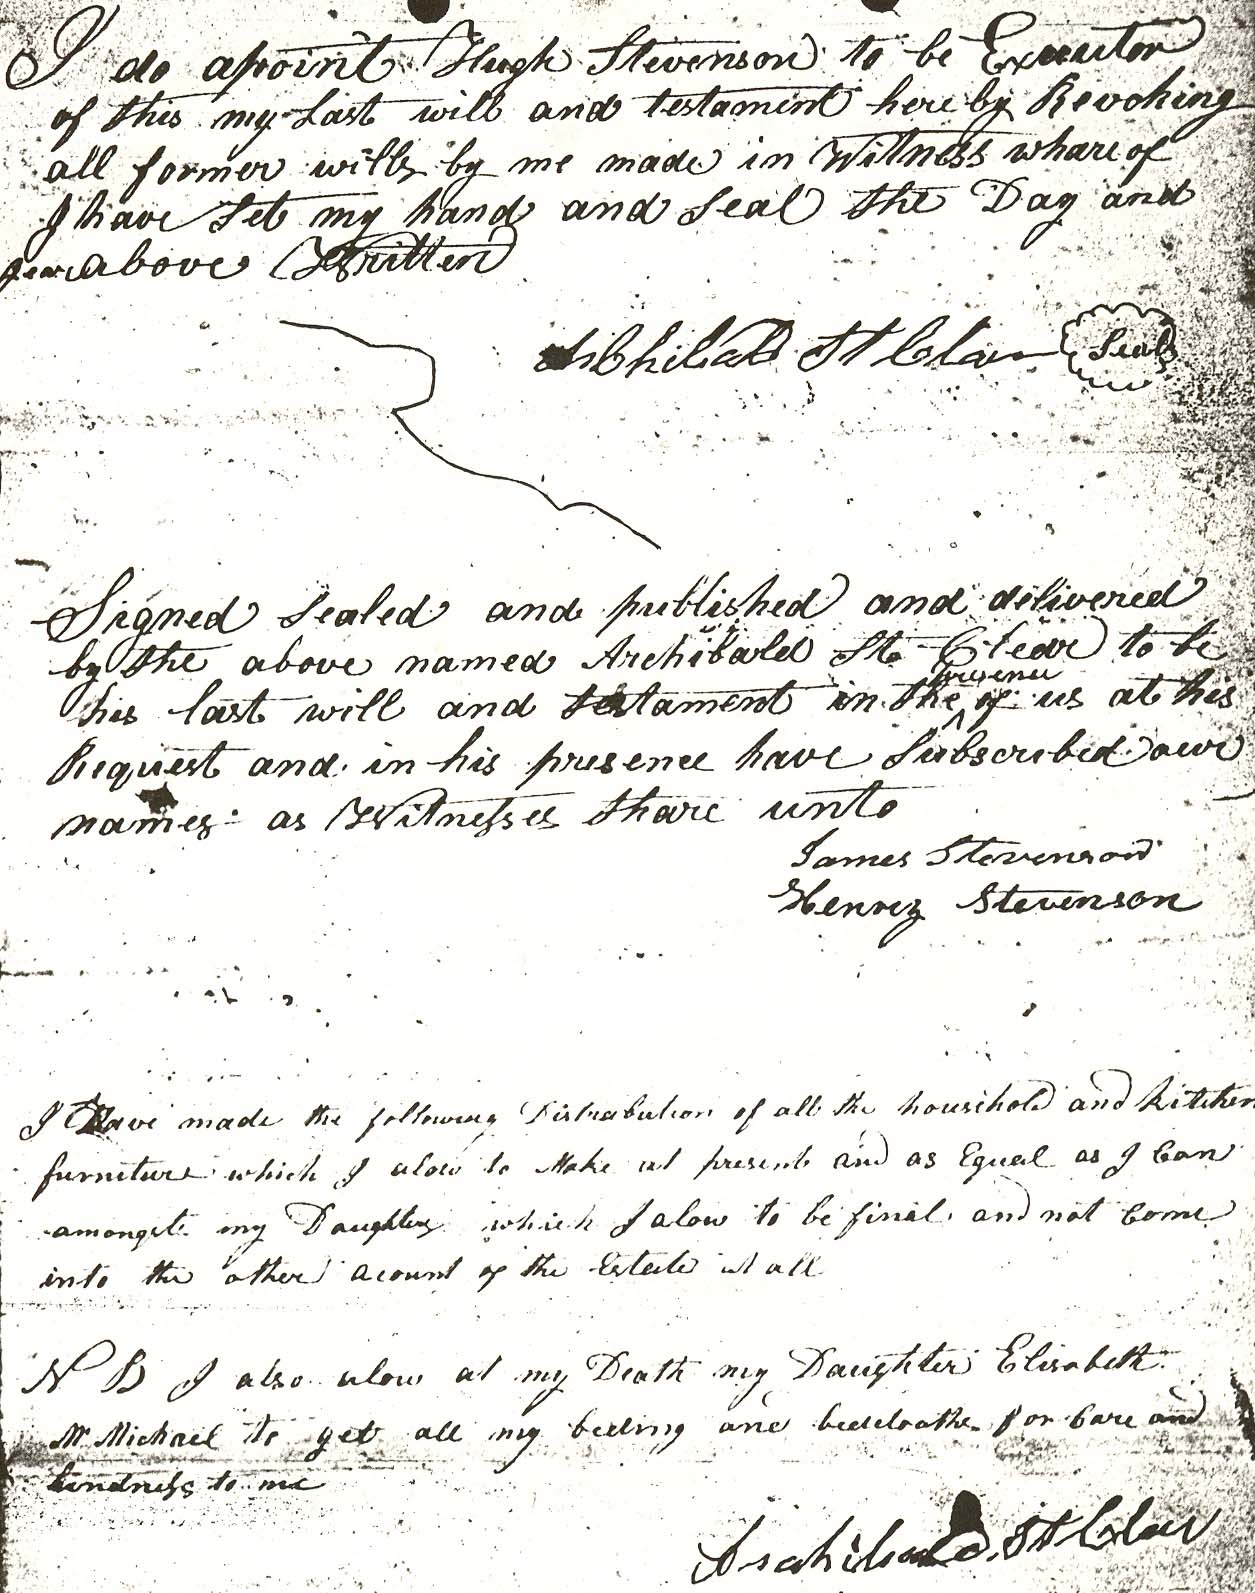 I do apoint Hugh Stevenson to be Executor
of this my Last will and testament here by Revoking
all former wills by me made in Witness whareof
I have Set my hand and Seal the Day and
year above Written
Archibald St Clair Seal
Signed Sealed and published and delivered
by the above named Archibald St Clear to be
his last will and testament in the presence of us at his
Request and in his presence have Subscribed our
names as Witnesses thare unto
James Stevenson
Henrey Stevenson
I Have made the following Distrabution of all the household and Kitchen
furniture which I alow to Make at present and as Equal as I Can
amongst my Daughters which I alow to be final and not Come
into the other acount of the Estate at all
N B I also alow at my Death my Daughter Elisabeth
Mc Michael to get all my beding and bedcloaths for Care and
kindness to me
Archibald St Clair